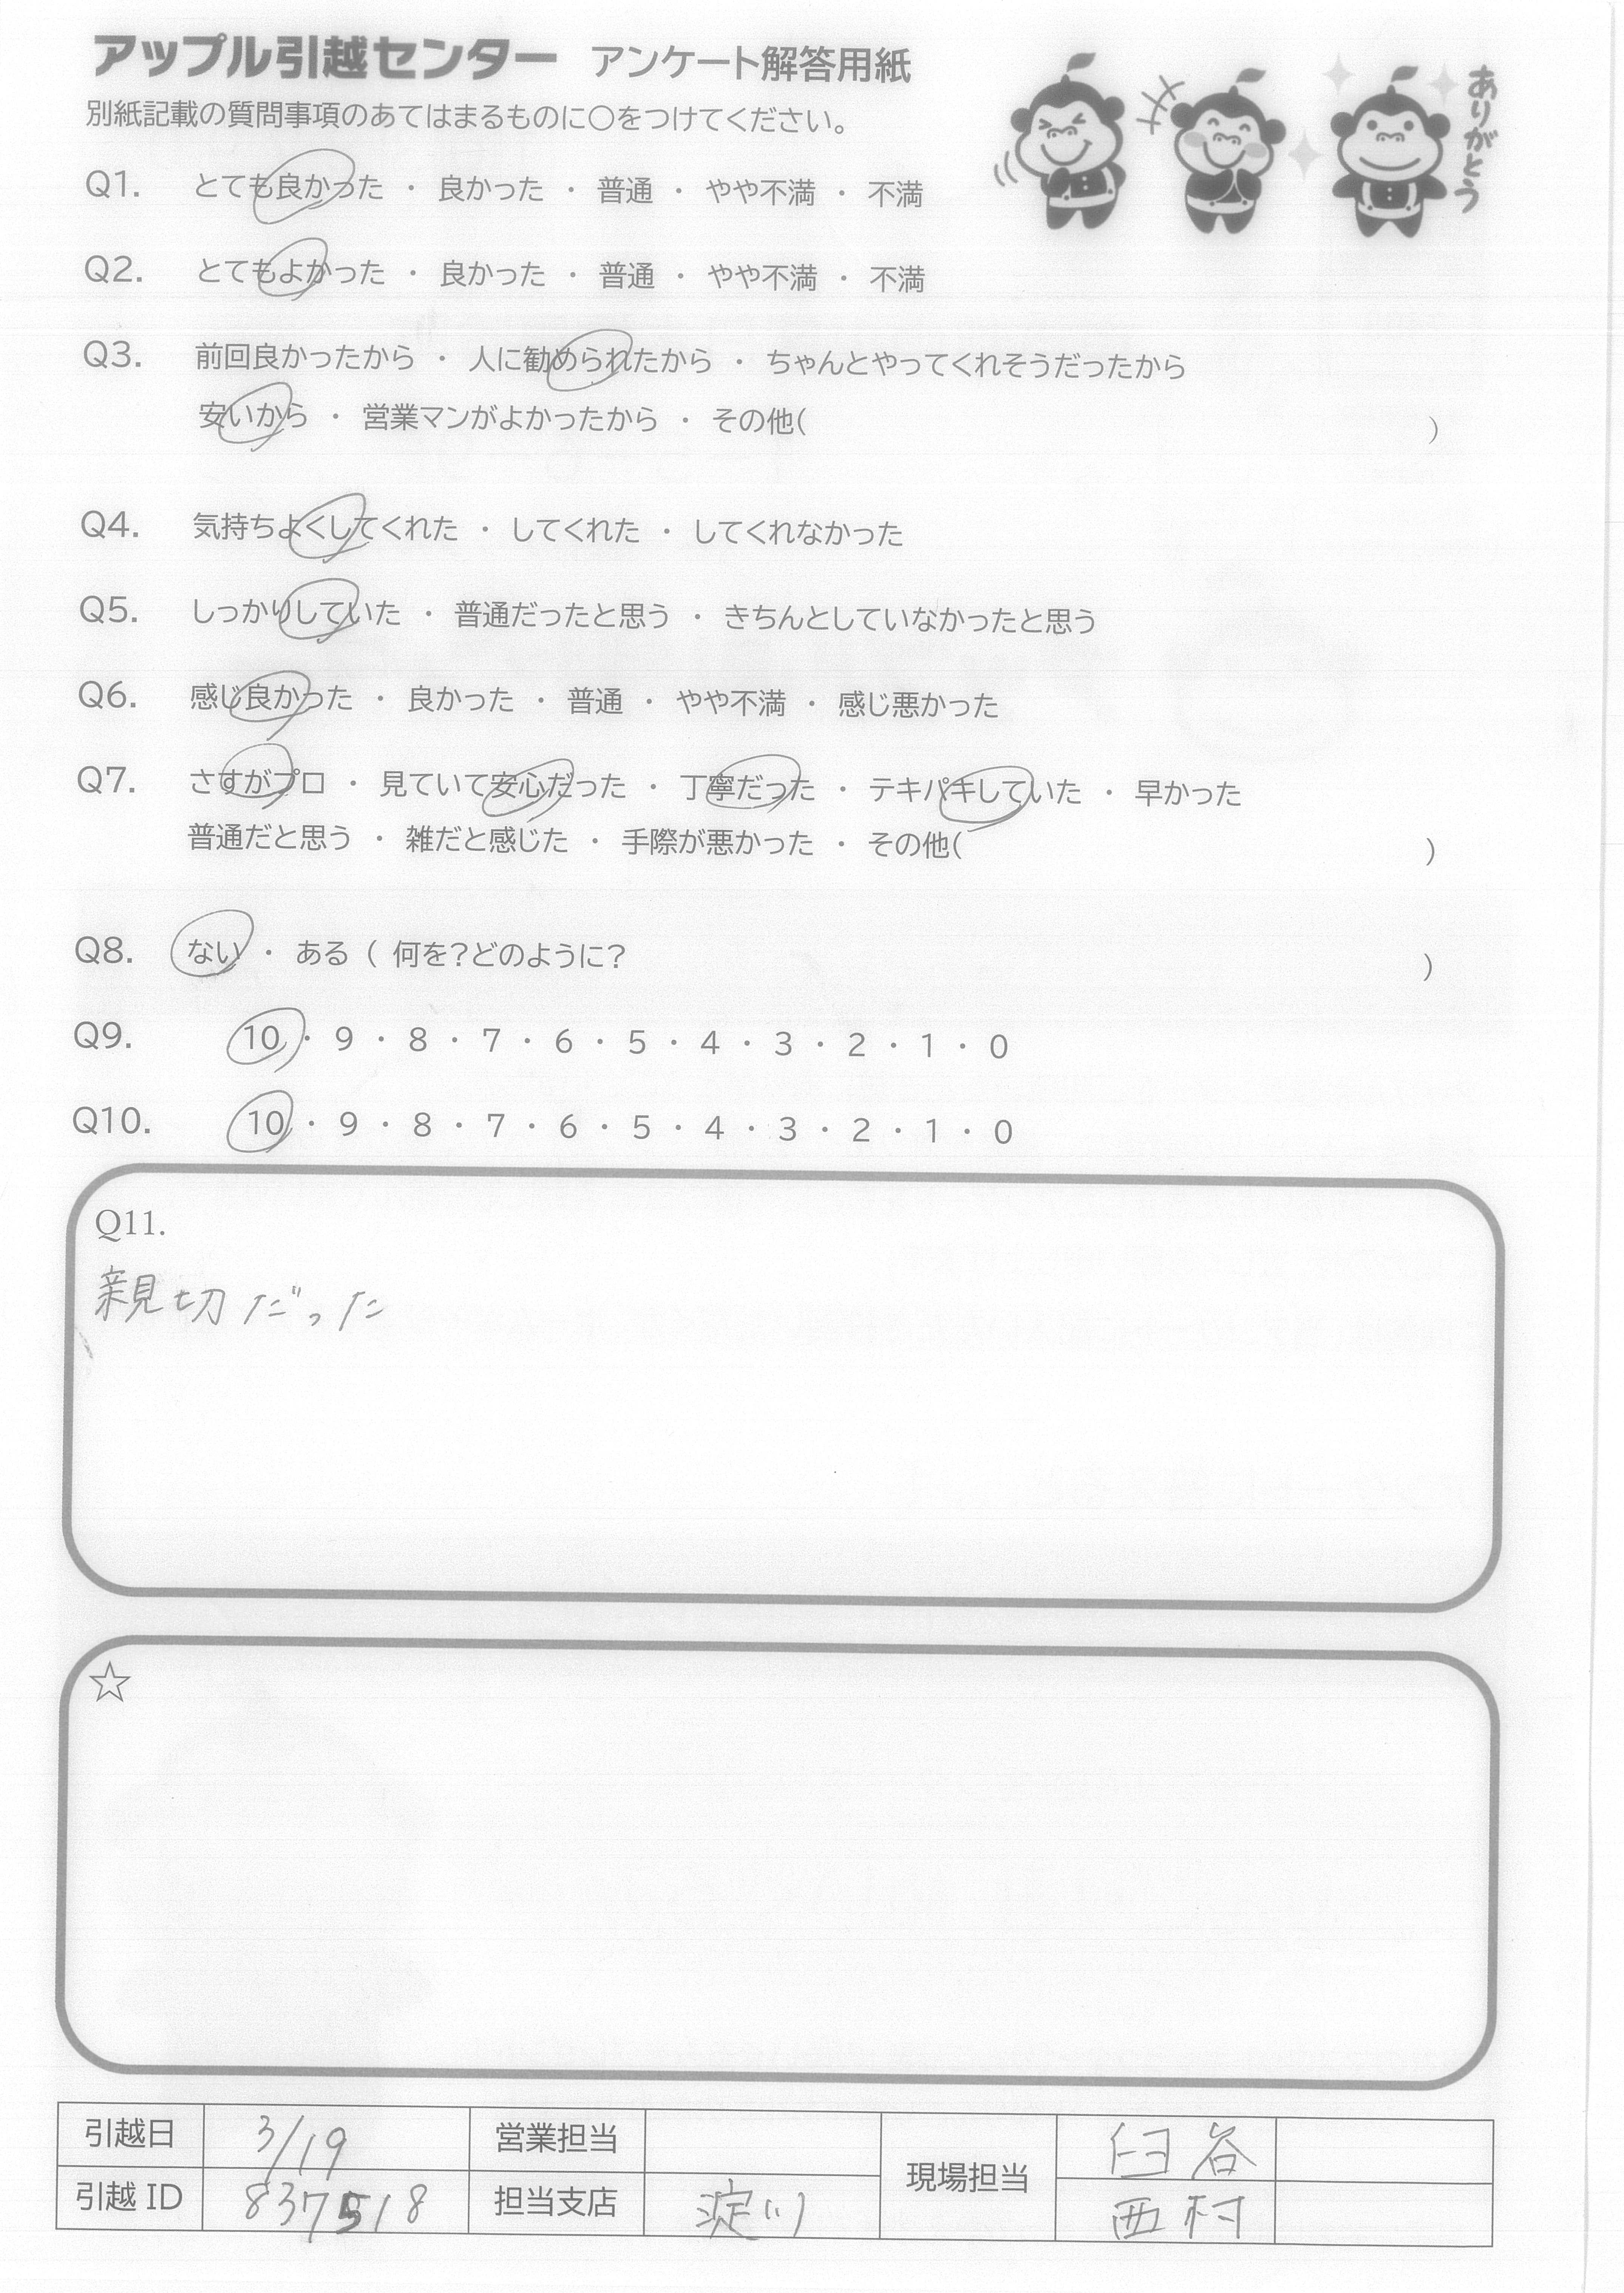 アップル引越センター アンケート解答用紙
別紙記載の質問事項のあてはまるものに〇をつけてください。
ありがとう
Q1. とても良かった ・ 良かった ・ 普通 ・ やや不満 ・ 不満
Q2. とてもよかった ・ 良かった ・ 普通 ・ やや不満 ・ 不満
Q3. 前回良かったから ・ 人に勧められたから ・ ちゃんとやってくれそうだったから
安いから ・ 営業マンがよかったから ・ その他( )
Q4. 気持ちよくしてくれた ・ してくれた ・ してくれなかった
Q5. しっかりしていた ・ 普通だったと思う ・ きちんとしていなかったと思う
Q6. 感じ良かった ・ 良かった ・ 普通 ・ やや不満 ・ 感じ悪かった
Q7. さすがプロ ・ 見ていて安心だった ・ 丁寧だった ・ テキパキしていた ・ 早かった
普通だと思う ・ 雑だと感じた ・ 手際が悪かった ・ その他( )
Q8. ない ・ ある ( 何を?どのように? )
Q9. 10 ・ 9 ・ 8 ・ 7 ・ 6 ・ 5 ・ 4 ・ 3 ・ 2 ・ 1 ・ 0
Q10. 10 ・ 9 ・ 8 ・ 7 ・ 6 ・ 5 ・ 4 ・ 3 ・ 2 ・ 1 ・ 0
Q11.
親切だった
☆
引越日 3/19 営業担当 現場担当 臼谷
引越 ID 837518 担当支店 淀川 西村